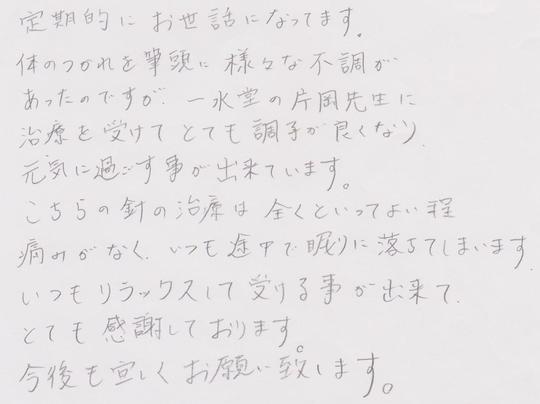 定期的に お世話になってます。
体のつかれを筆頭に 様々な 不調が
あったのですが、一水堂の片岡先生に
治療を受けて とても 調子が良くなり、
元気に過ごす事が出来ています。
こちらの針の治療は 全くといってよい程
痛みがなく、いつも途中で眠りに落ちてしまいます。
いつもリラックスして 受ける事が出来て、
とても感謝しております。
今後も宜しくお願い致します。